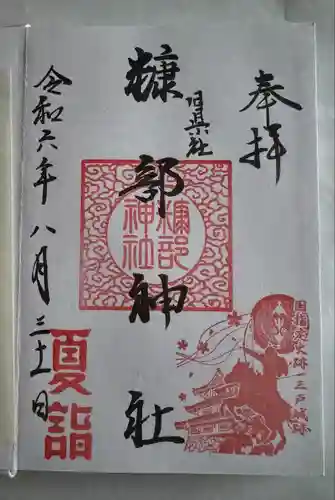 奉拝
旧県社
糠部神社
糠部
神社
令和六年八月三十一日
夏詣
国指定史跡 三戸城跡